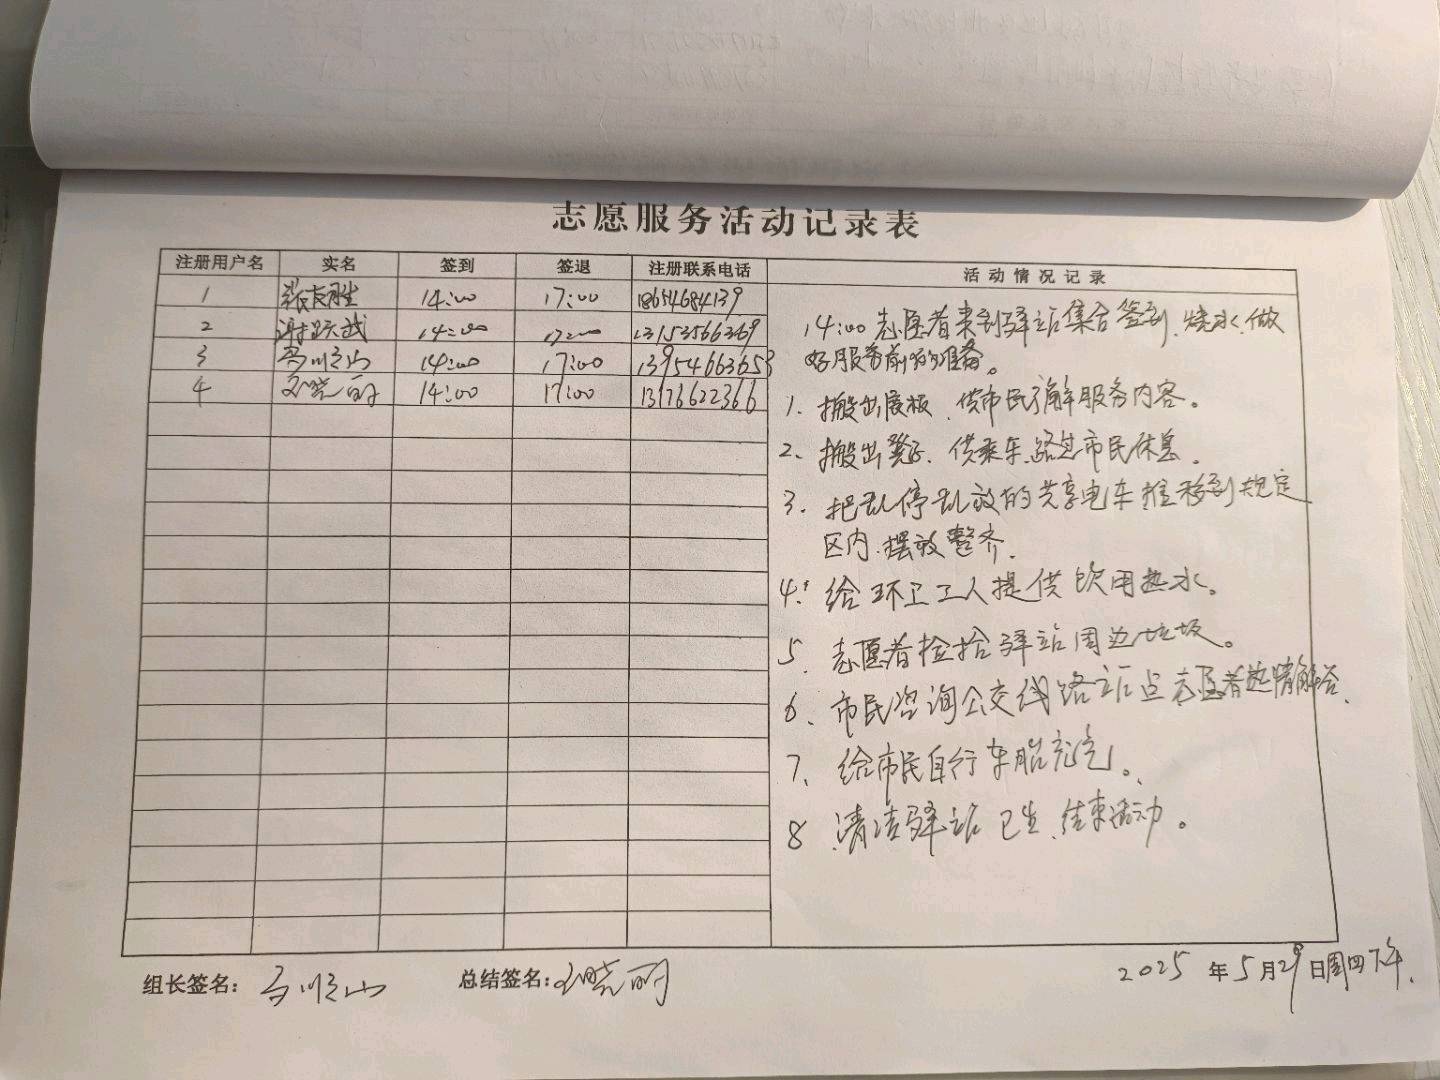 志愿服务活动记录表
注册用户名 实名 签到 签退 注册联系电话 活动情况记录
1 张友胜 14:00 17:00 18654684139
2 14:00 17:00 13153566369
3 马顺山 14:00 17:00 13954663653
4 王晓丽 14:00 17:00 13176622366
14:00志愿者来到驿站集合签到、烧水、做
好服务前的准备。
1、搬出展板、供市民了解服务内容。
2、搬出凳子、供乘车、路过市民休息。
3、把乱停乱放的共享电车推移到规定
区内、摆放整齐。
4、给环卫工人提供饮用热水。
5、志愿者捡拾驿站周边垃圾。
6、市民咨询公交线路站点志愿者热情解答、
7、给市民自行车胎充气。
8、清洁驿站卫生、结束活动。
组长签名：马顺山 总结签名：王晓丽 2025年5月29日周四下午.